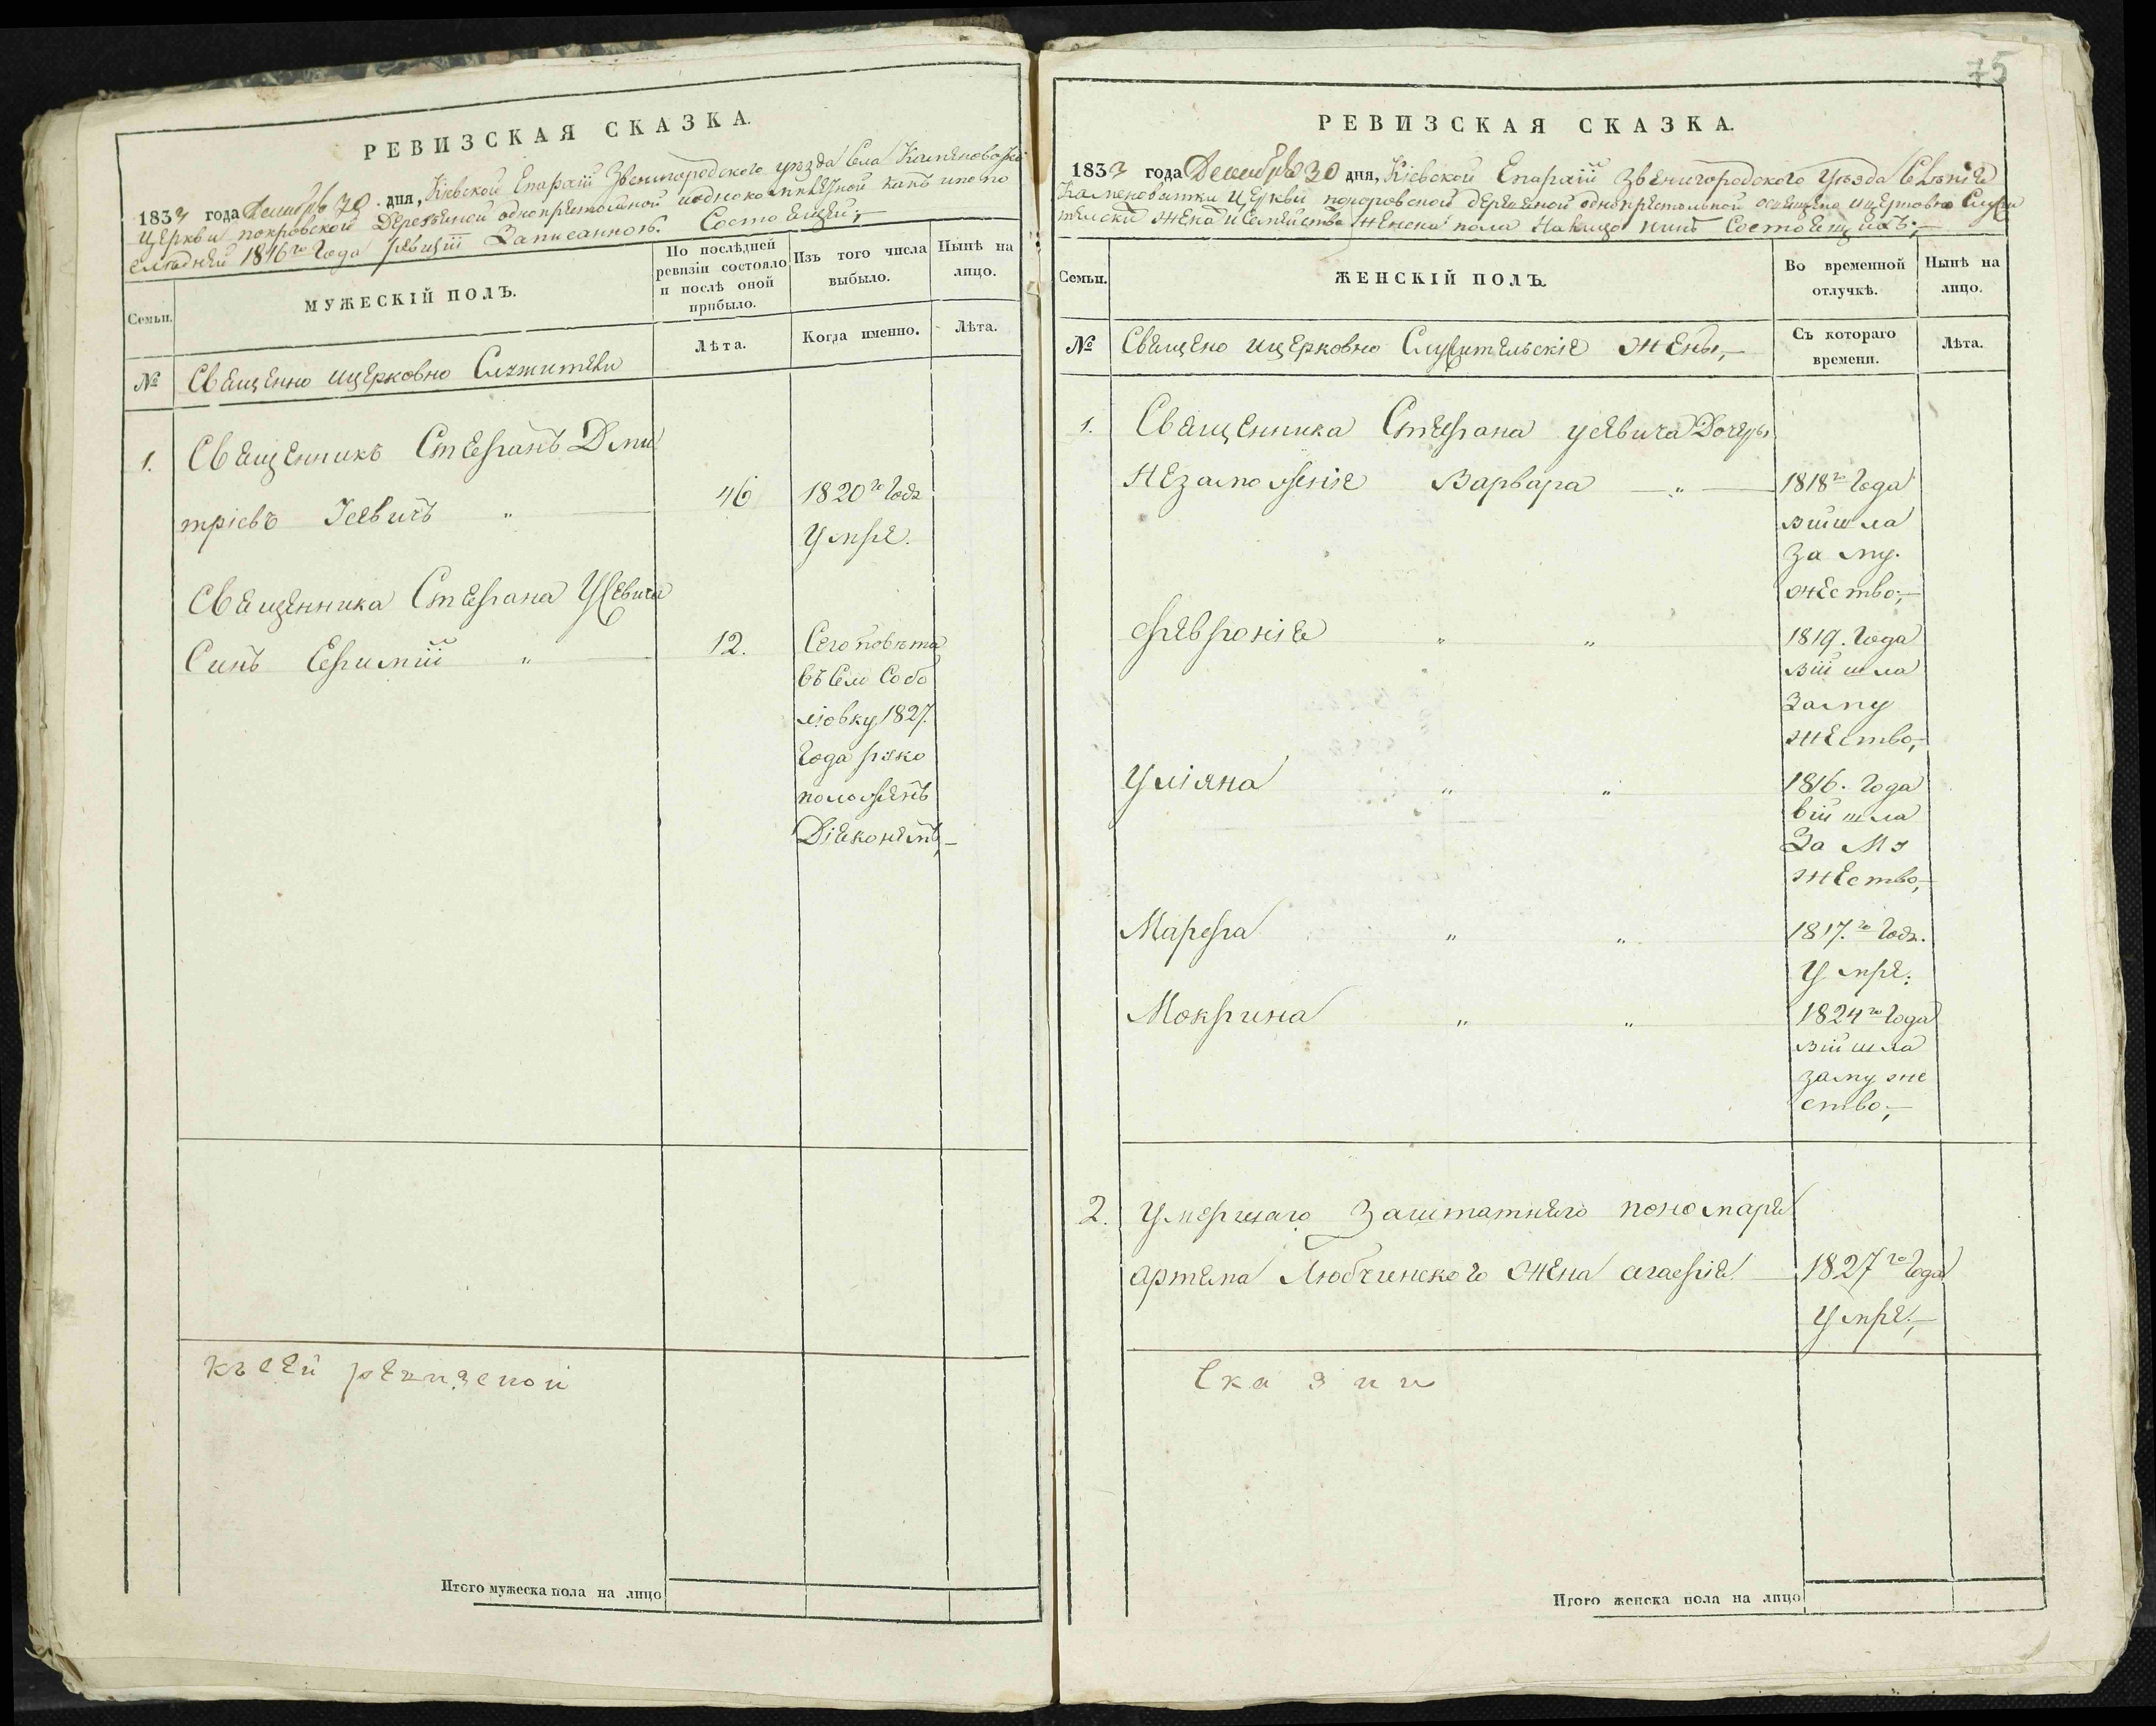 РЕВИЗСКАЯ СКАЗКА.
1833 года Декабря 30 дня, Кіевской Епархіи Звенигородского уезда Села
церкви покровской Деревяной однопрестольной
следней 1816го Года ревизіи Записанной. Состоящей,—
Семьи.
МУЖЕСКІЙ ПОЛЪ.
По послѣдней ревизіи состояло и послѣ оной прибыло.
Изъ того числа выбыло.
Нынѣ на лицо.
№
Священно ицерковно Служители
Лѣта.
Когда именно.
Лѣта.
1. Священникъ Стефанъ Дми
тріевъ Усевичъ „ 46 1820го Года
Умре.
Священника Стефана Усевича
Синъ Ефимій „ 12. Сего повѣта
въ Село Собо
лювку 1827.
Года руко
положенъ
Діаконемъ,—
къ сей ревизской
Итого мужеска пола на лицо
75
РЕВИЗСКАЯ СКАЗКА.
1833 года Декабря 30 дня, Кіевской Епархіи Звенигородского Уезда Селенія
Каменоватки Церкви покоровской деревяной однопрестольной священо ицерковно Служи
тельски жена исемейства женска пола Налицо нинѣ Состоящихъ;—
Семьи.
ЖЕНСКІЙ ПОЛЪ.
Во временной отлучкѣ.
Нынѣ на лицо.
№
Священо ицерковно Служительскіе жены,—
Съ котораго времени.
Лѣта.
1. Священника Стефана усевича Дочеры
незаможеніе Варвара „ 1818го Года
вийшла
За му.
жество;—
февронія „ „ 1819. Года
вийшла
Заму
жество,—
Уліяна „ „ 1816. Года
вийшла
За Му
жество,—
Марфа „ „ 1817.го Года.
Умре.
Мокрина „ „ 1824го Года
вийшла
замуже
ство;—
2. Умершаго Заштатняго пономаря
артема Любчинского Жена агафія 1827го Года
Умре.;—
Сказки
Итого женска пола на лицо